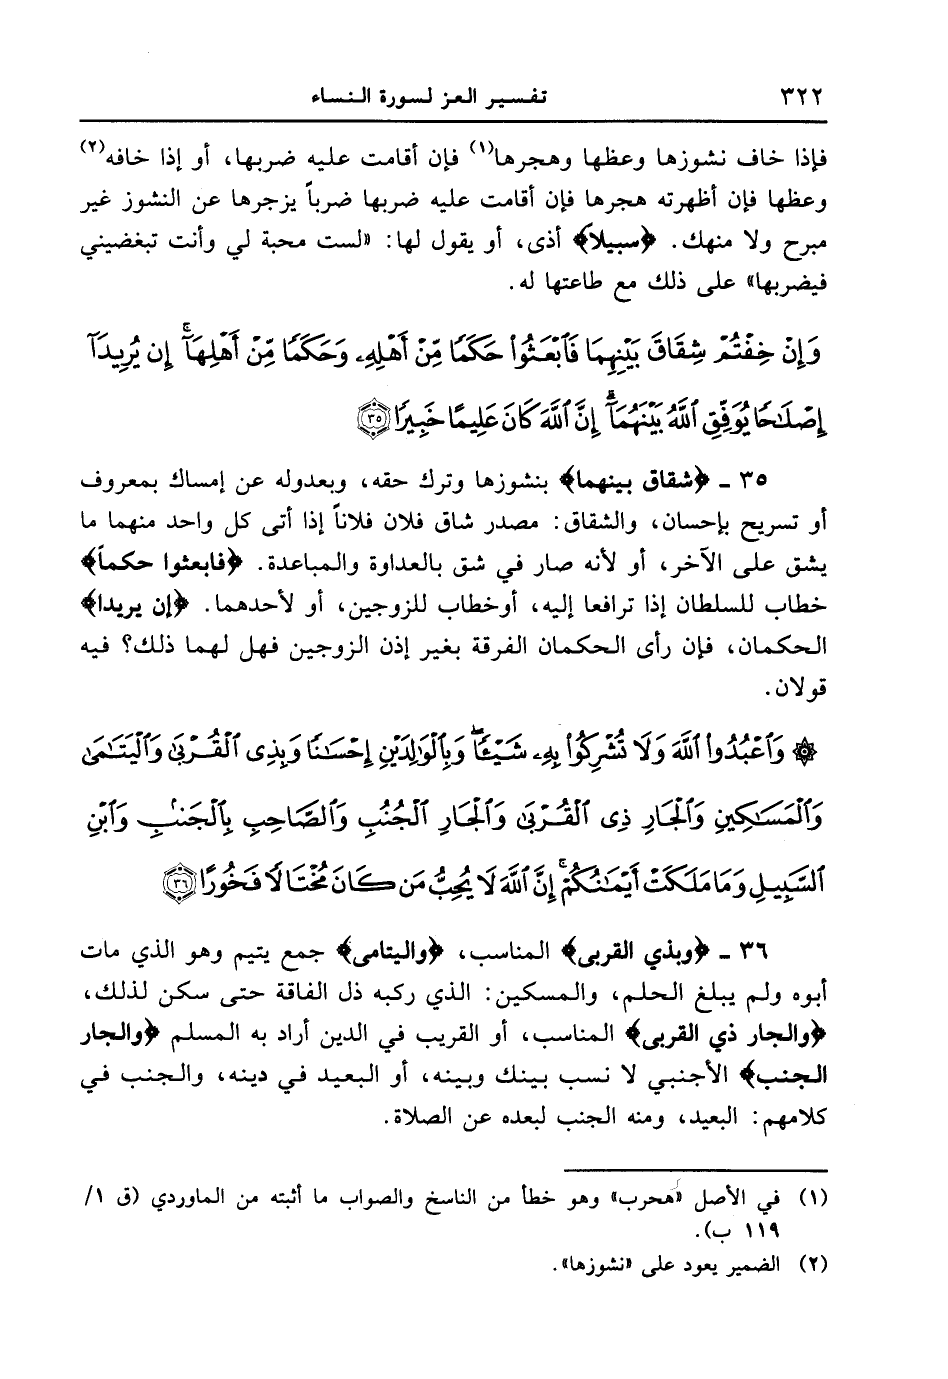 ٣٢٢ تفسير العز لسورة النساء
فإذا خاف نشوزها وعظها وهجرها(١) فإن أقامت عليه ضربها، أو إذا خافه(٢)
وعظها فإن أظهرته هجرها فإن أقامت عليه ضربها ضرباً يزجرها عن النشوز غير
مبرح ولا منهك. ﴿سبيلاً﴾ أذى، أو يقول لها: «لست محبة لي وأنت تبغضيني
فيضربها» على ذلك مع طاعتها له.
وَإِنْ خِفْتُمْ شِقَاقَ بَيْنِهِمَا فَٱبْعَثُوا۟ حَكَمًا مِّنْ أَهْلِهِۦ وَحَكَمًا مِّنْ أَهْلِهَآ ۚ إِن يُرِيدَآ
إِصْلَٰحًا يُوَفِّقِ ٱللَّهُ بَيْنَهُمَآ ۗ إِنَّ ٱللَّهَ كَانَ عَلِيمًا خَبِيرًا ۝٣٥
٣٥ ـ ﴿شقاق بينهما﴾ بنشوزها وترك حقه، وبعدوله عن إمساك بمعروف
أو تسريح بإحسان، والشقاق: مصدر شاق فلان فلاناً إذا أتى كل واحد منهما ما
يشق على الآخر، أو لأنه صار في شق بالعداوة والمباعدة. ﴿فابعثوا حكماً﴾
خطاب للسلطان إذا ترافعا إليه، أوخطاب للزوجين، أو لأحدهما. ﴿إن يريدا﴾
الحكمان، فإن رأى الحكمان الفرقة بغير إذن الزوجين فهل لهما ذلك؟ فيه
قولان.
۞ وَٱعْبُدُوا۟ ٱللَّهَ وَلَا تُشْرِكُوا۟ بِهِۦ شَيْـًٔا ۖ وَبِٱلْوَٰلِدَيْنِ إِحْسَٰنًا وَبِذِى ٱلْقُرْبَىٰ وَٱلْيَتَٰمَىٰ
وَٱلْمَسَٰكِينِ وَٱلْجَارِ ذِى ٱلْقُرْبَىٰ وَٱلْجَارِ ٱلْجُنُبِ وَٱلصَّاحِبِ بِٱلْجَنۢبِ وَٱبْنِ
ٱلسَّبِيلِ وَمَا مَلَكَتْ أَيْمَٰنُكُمْ ۗ إِنَّ ٱللَّهَ لَا يُحِبُّ مَن كَانَ مُخْتَالًا فَخُورًا ۝٣٦
٣٦ ـ ﴿وبذي القربى﴾ المناسب، ﴿واليتامى﴾ جمع يتيم وهو الذي مات
أبوه ولم يبلغ الحلم، والمسكين: الذي ركبه ذل الفاقة حتى سكن لذلك،
﴿والجار ذي القربى﴾ المناسب، أو القريب في الدين أراد به المسلم ﴿والجار
الجنب﴾ الأجنبي لا نسب بينك وبينه، أو البعيد في دينه، والجنب في
كلامهم: البعيد، ومنه الجنب لبعده عن الصلاة.
(١) في الأصل «هحرب» وهو خطأ من الناسخ والصواب ما أثبته من الماوردي (ق ١/
١١٩ ب).
(٢) الضمير يعود على «نشوزها».